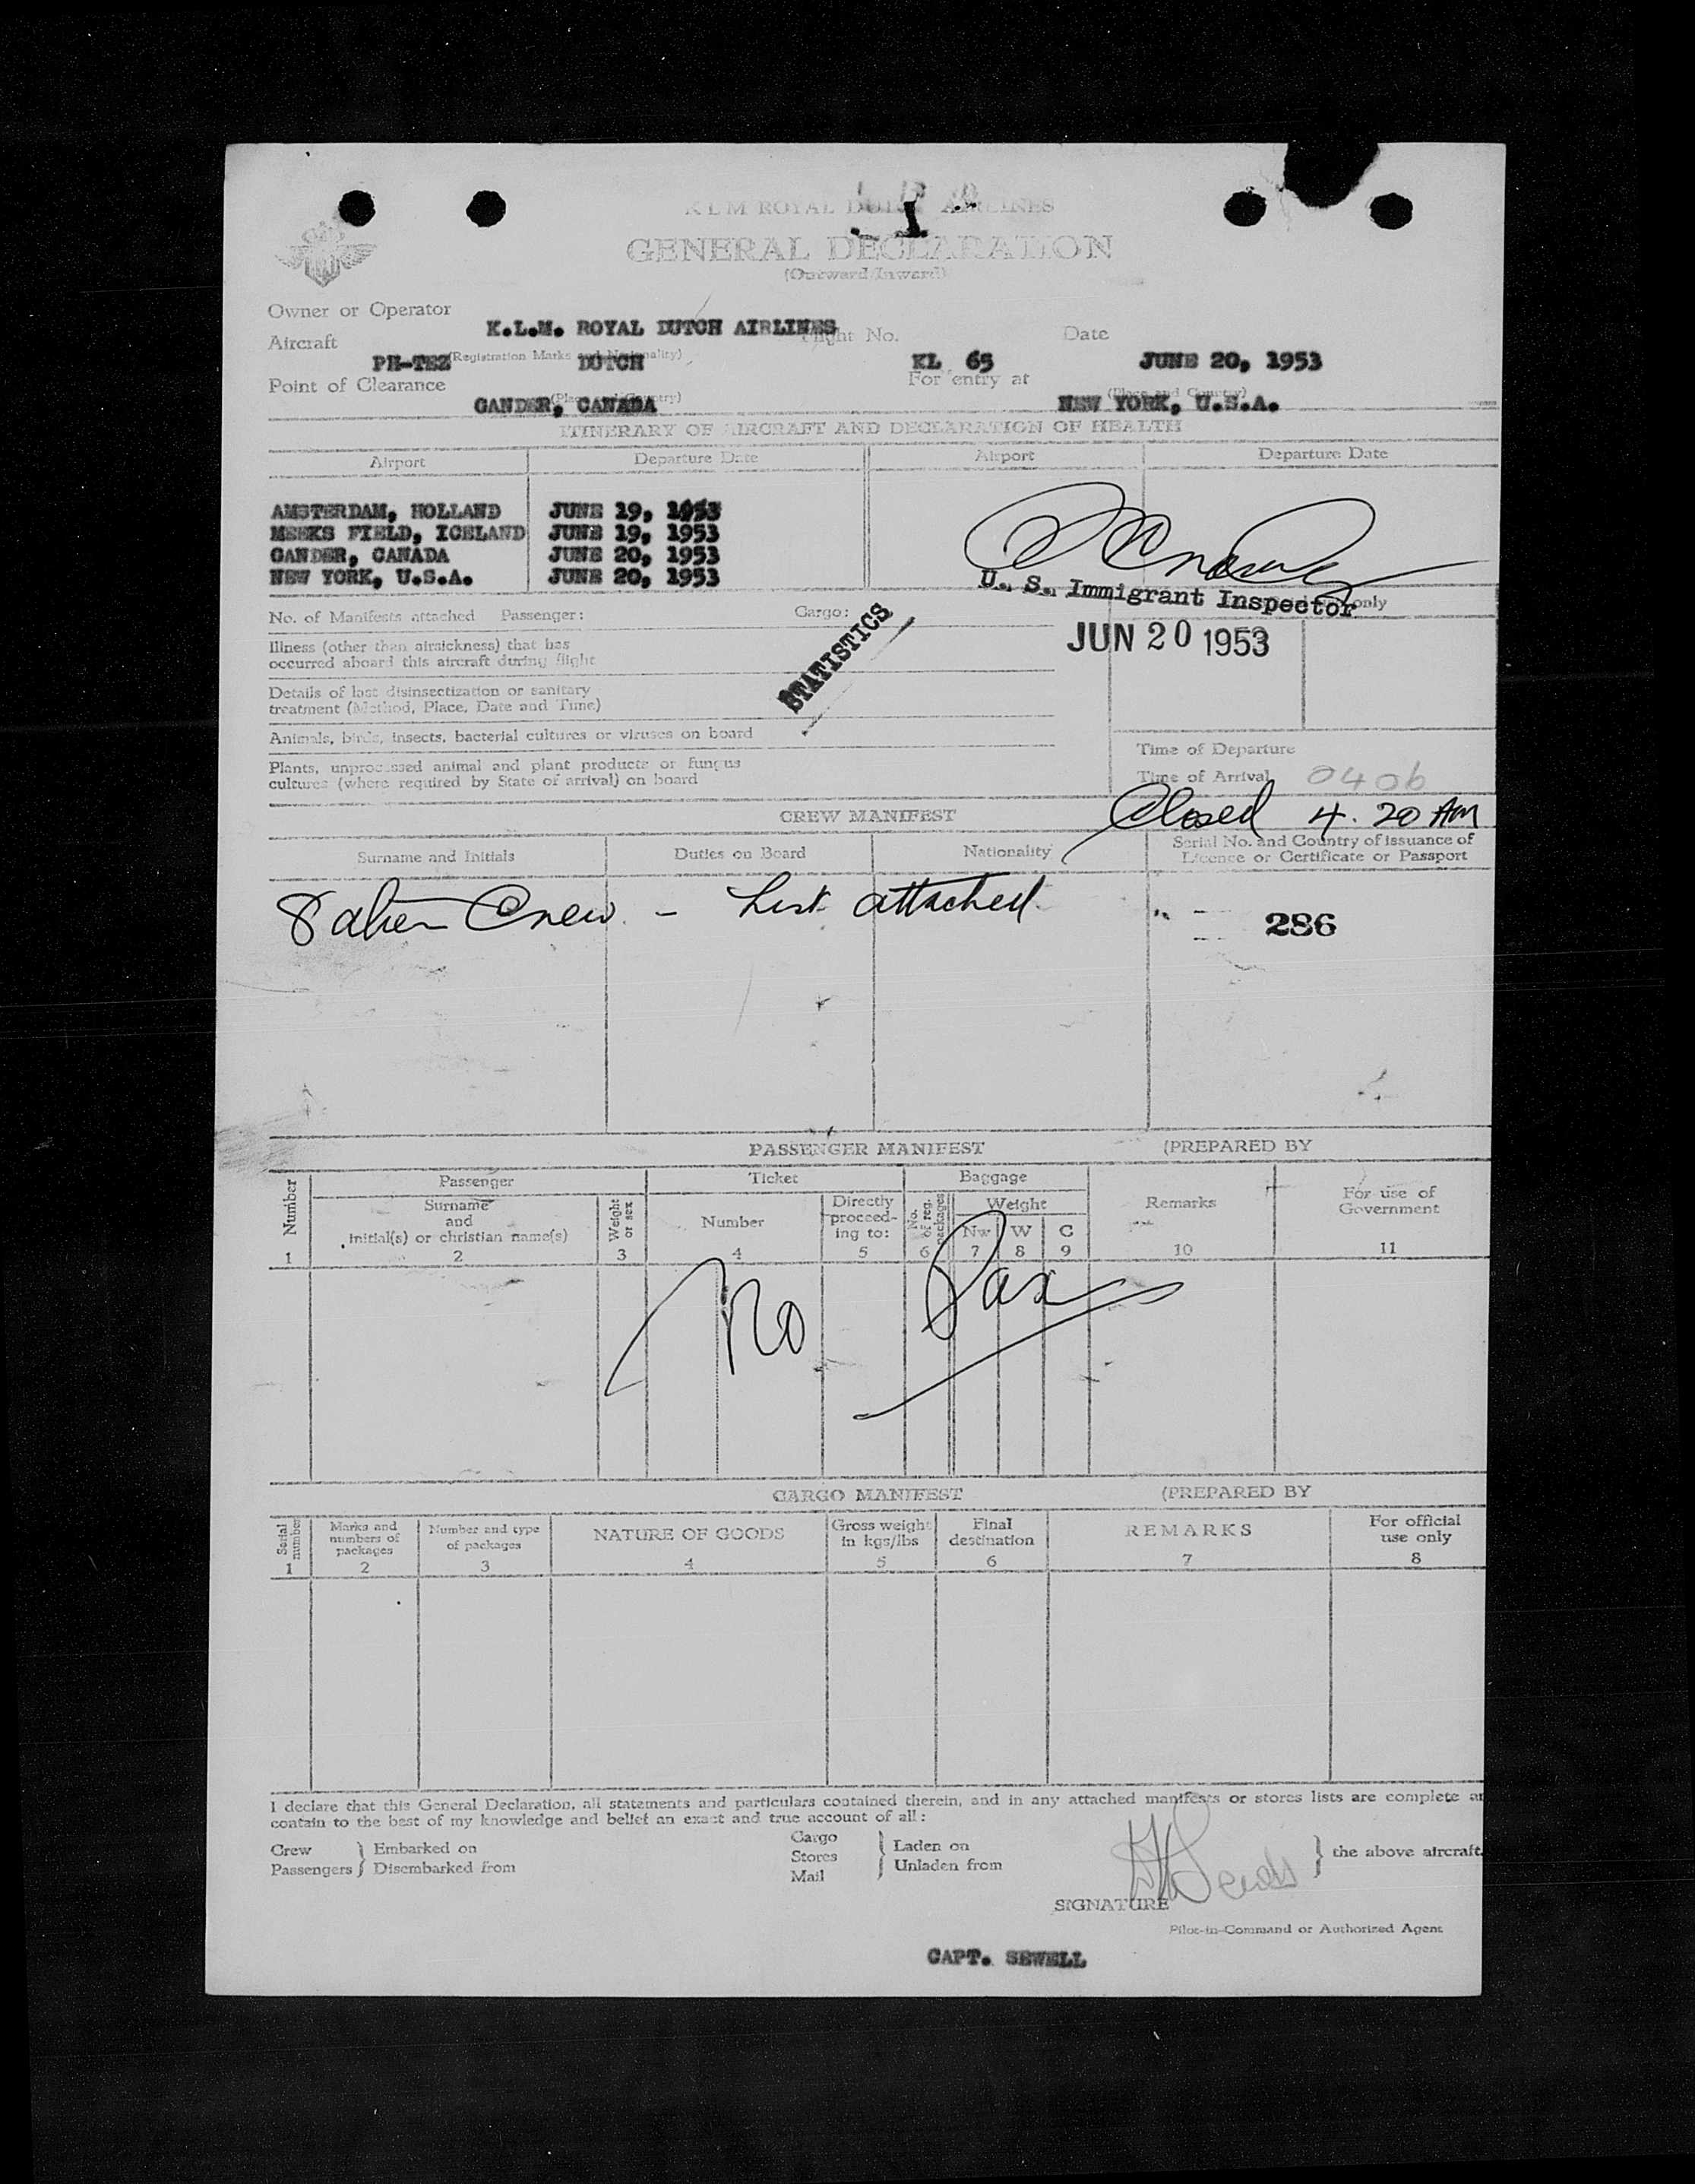 KLM ROYAL DUTCH AIRLINES
1
GENERAL DECLARATION
(Outward/Inward)
Owner or Operator
K.L.M. ROYAL DUTCH AIRLINES
Aircraft Flight No. Date
PH-TEZ (Registration Marks and Nationality) DUTCH KL 65 JUNE 20, 1953
Point of Clearance For entry at
GANDER, CANADA (Place and Country) NEW YORK, U.S.A. (Place and Country)
ITINERARY OF AIRCRAFT AND DECLARATION OF HEALTH
Airport Departure Date Airport Departure Date
AMSTERDAM, HOLLAND JUNE 19, 1953
MEEKS FIELD, ICELAND JUNE 19, 1953
GANDER, CANADA JUNE 20, 1953
NEW YORK, U.S.A. JUNE 20, 1953
U. S. Immigrant Inspector
only
No. of Manifests attached Passenger: Cargo:
JUN 20 1953
STATISTICS
Illness (other than airsickness) that has
occurred aboard this aircraft during flight
Details of last disinsectization or sanitary
treatment (Method, Place, Date and Time)
Animals, birds, insects, bacterial cultures or viruses on board
Plants, unprocessed animal and plant products or fungus
cultures (where required by State of arrival) on board
Time of Departure
Time of Arrival 0406
Closed 4.20 AM
CREW MANIFEST
Surname and Initials Duties on Board Nationality Serial No. and Country of issuance of
Licence or Certificate or Passport
8 alien Crew - List attached
286
PASSENGER MANIFEST (PREPARED BY
Number Passenger Ticket Baggage Remarks For use of
Government
Surname
and
initial(s) or christian name(s)
Weight
or sex
Number
Directly
proceed-
ing to:
No.
of reg.
packages
Weight
Nw W C
1 2 3 4 5 6 7 8 9 10 11
No Pax
CARGO MANIFEST (PREPARED BY
Serial
number
Marks and
numbers of
packages
Number and type
of packages
NATURE OF GOODS
Gross weight
in kgs/lbs
Final
destination
REMARKS
For official
use only
1 2 3 4 5 6 7 8
I declare that this General Declaration, all statements and particulars contained therein, and in any attached manifests or stores lists are complete an
contain to the best of my knowledge and belief an exact and true account of all:
Crew
Passengers
Embarked on
Disembarked from
Cargo
Stores
Mail
Laden on
Unladen from
the above aircraft.
SIGNATURE
Pilot-in-Command or Authorized Agent
CAPT. SEWELL